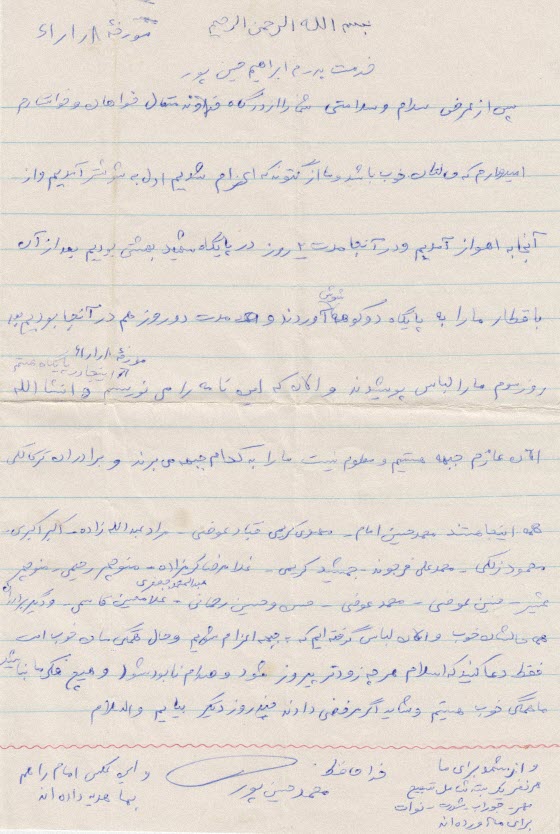 بسم الله الرحمن الرحیم
مورخهٔ
خدمت پدرم ابراهیم حسین پور
پس از عرض سلام و سلامتی شما را از درگاه خداوند متعال خواهان و خواستارم
امیدوارم که حالتان خوب باشد و ما از که اعزام شدیم اول به شوشتر آمدیم و از
آنجا به اهواز آمدیم و در آنجا مدت ۲ روز در پایگاه شهید بهشتی بودیم بعد از آن
با قطار ما را به پایگاه دوکوهه آوردند و مدت دو روز هم در آنجا بودیم
مورخهٔ
اینجا در پایگاه هستم
روز سوم ما را لباس پوشیدند و الان که این نامه را می نویسم و انشا الله
الان عازم جبهه هستیم و معلوم نیست ما را به کدام جبهه می برند و برادران
همه اینجا هستند محمد حسین امام - مهدی کریمی قباد عوضی - مراد عبدالله زاده - اکبر اکبری -
محمود زلکی - محمد علی - جمشید کریمی - غلامرضا - منوچهر رحیمی - منوچهر
حسین عوضی - محمد عوضی - حسن و حسین رمضانی - غلامحسین - و دیگر
همه حالشان خوب و الان لباس گرفته ایم که به جبهه اعزام شویم و حال همگی مان خوب است
فقط دعا کنید که اسلام هر چه زودتر پیروز شود و صدام نابود شود و هیچ فکر ما نباشید
ما همگی خوب هستیم و شاید اگر مرخصی دادند چند روز دیگر بیایم والسلام
خدا حافظ
محمد حسین پور
و این عکس امام را هم
بما هدیه داده اند
و از برای ما
هر نفر یک شامل تسبیح
مهر - جوراب -
برای ما آورده اند